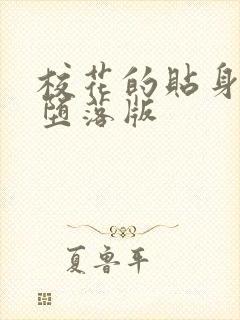 校花的贴身
堕落版
夏鲁平